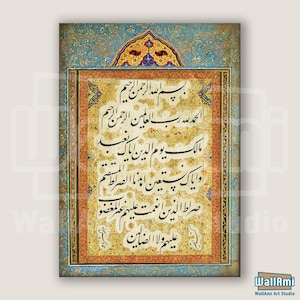 بسم الله الرحمن الرحیم
الحمد لله رب العالمین الرحمن الرحیم
مالک یوم الدین ایاک نعبد
وایاک نستعین اهدنا الصراط المستقیم
صراط الذین انعمت علیهم غیر المغضوب
علیهم ولا الضالین
WallAmi
WallAmi Art Studio